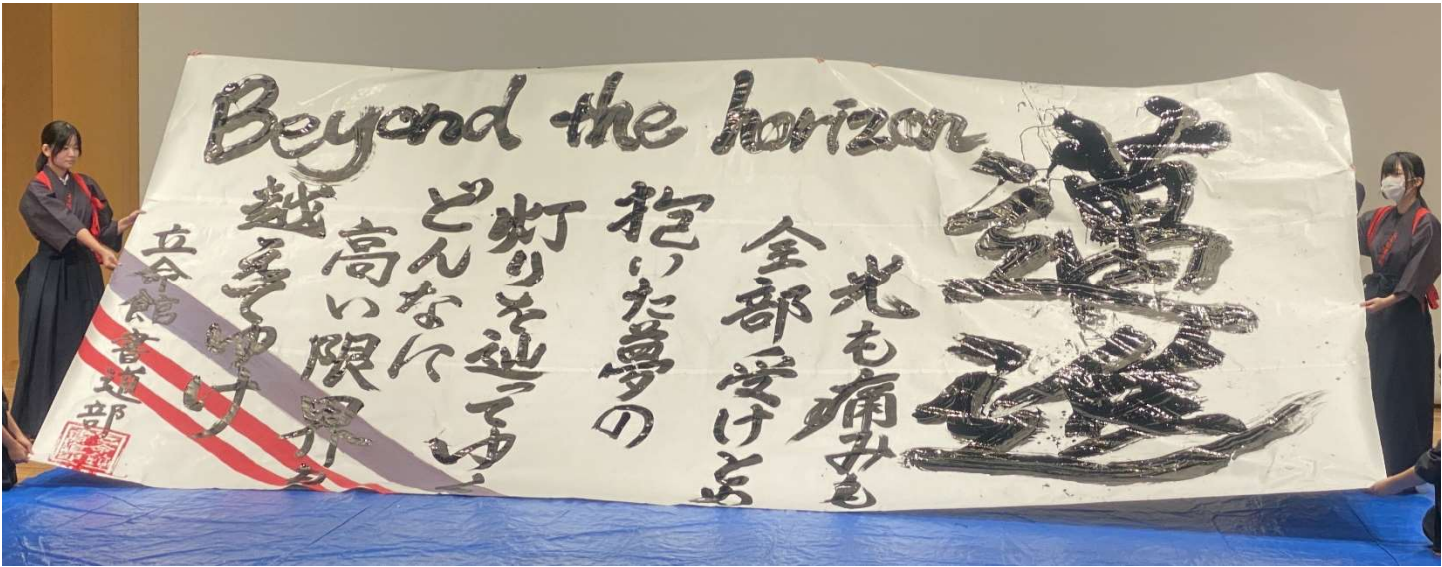 Beyond the horizon
邁進
光も痛みも
全部受け
抱いた夢の
灯りを辿ってゆ
どんなに
高い限界を
越えてゆけ
立命館書道部